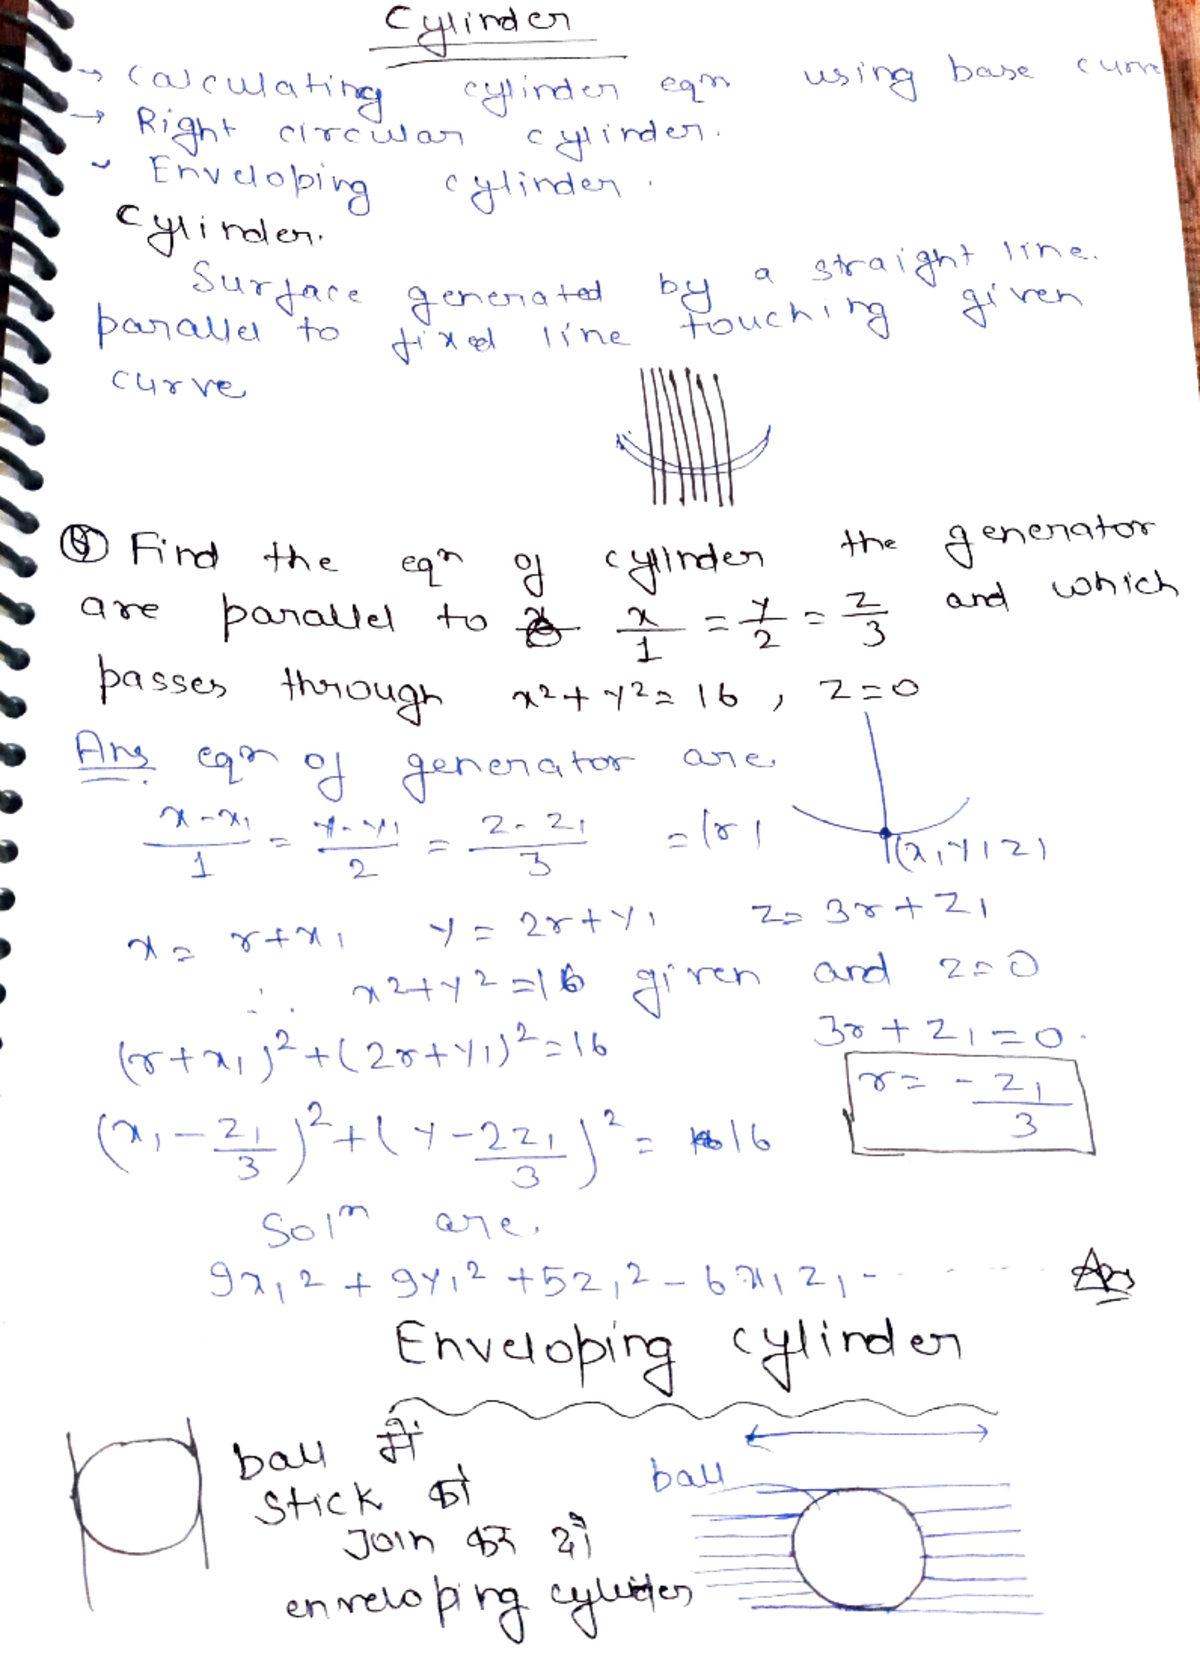 Cylinder
→ Calculating cylinder eqn using base curve
→ Right circular cylinder.
Enveloping cylinder.
Cylinder.
Surface generated by a straight line.
parallel to fixed line touching given
curve
Q Find the eqn of cylinder the generator
are parallel to x/1 = y/2 = z/3 and which
passes through x²+y²=16, z=0
Ans. eqn of generator are.
(x-x₁)/1 = (y-y₁)/2 = (z-z₁)/3 = (r)
(x,y,z)
x = r+x₁ y = 2r+y₁ z = 3r+z₁
∴ x²+y²=16 given and z=0
(r+x₁)²+(2r+y₁)²=16 3r+z₁=0.
r = -z₁/3
(x₁-z₁/3)²+(y-2z₁/3)² = 16
Solⁿ are.
9x₁²+9y₁²+5z₁²-6x₁z₁-------- Ans
Enveloping cylinder
ball में
stick को
join कर दो
enveloping cylinder
ball